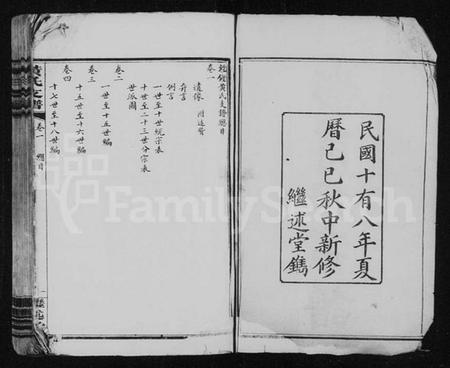 民國十有八年夏
曆己巳秋中新修
繼述堂鐫
黃氏支譜總目
卷一
遺像 附述贊
弁言
例言
一世至十世統宗表
十世至二十三世分宗表
世派圖
卷二
一世至十五世編
卷三
十五世至十六世編
卷四
十七世至十八世編
黃氏支譜 卷一 總目
FamilySearch